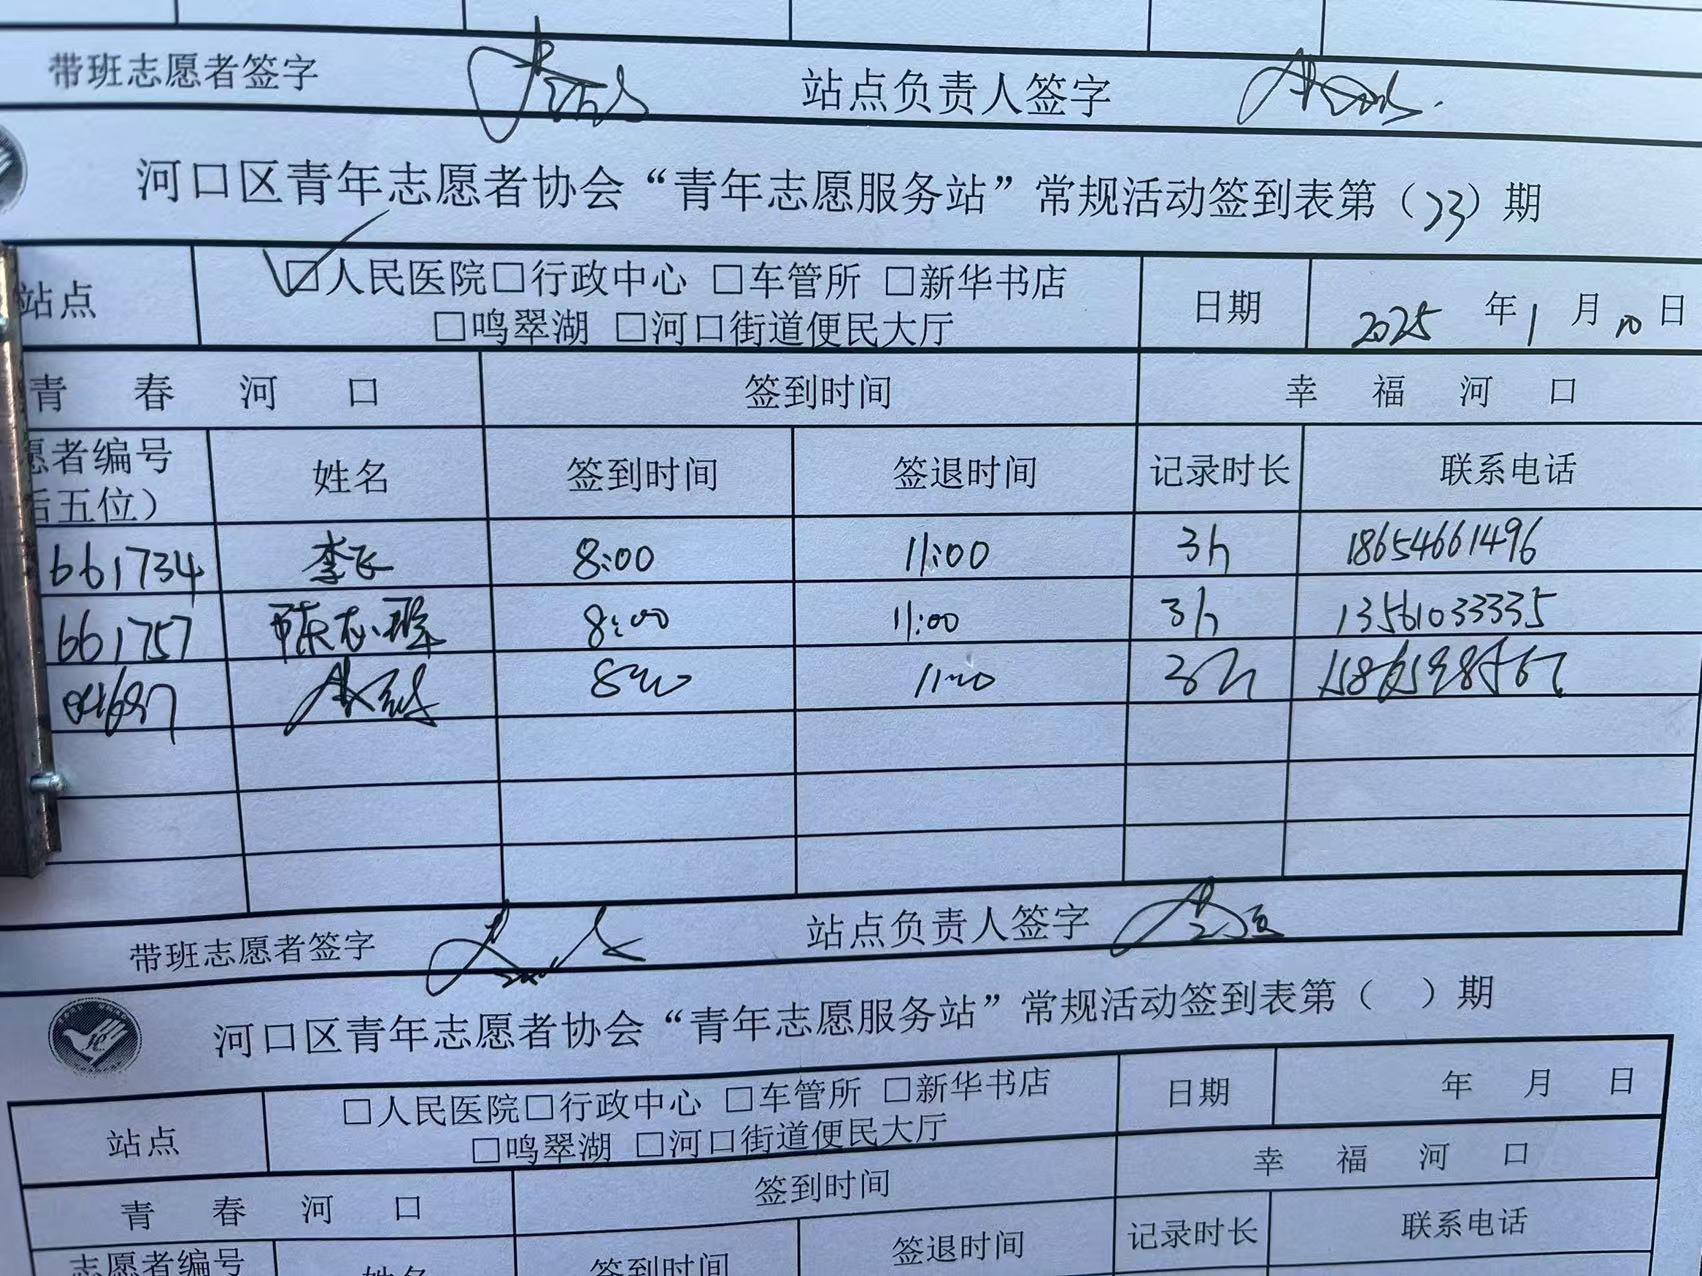 带班志愿者签字 站点负责人签字
河口区青年志愿者协会“青年志愿服务站”常规活动签到表第（23）期
站点 □人民医院□行政中心 □车管所 □新华书店 日期 2025 年 1 月 10 日
□鸣翠湖 □河口街道便民大厅
青 春 河 口 签到时间 幸 福 河 口
愿者编号 姓名 签到时间 签退时间 记录时长 联系电话
后五位）
661734 李飞 8:00 11:00 3h 18654661496
661757 陈志 8:00 11:00 3h 13561033335
8:00 11:00 3h
带班志愿者签字 站点负责人签字
河口区青年志愿者协会“青年志愿服务站”常规活动签到表第（ ）期
站点 □人民医院□行政中心 □车管所 □新华书店 日期 年 月 日
□鸣翠湖 □河口街道便民大厅
青 春 河 口 签到时间 幸 福 河 口
志愿者编号 姓名 签到时间 签退时间 记录时长 联系电话